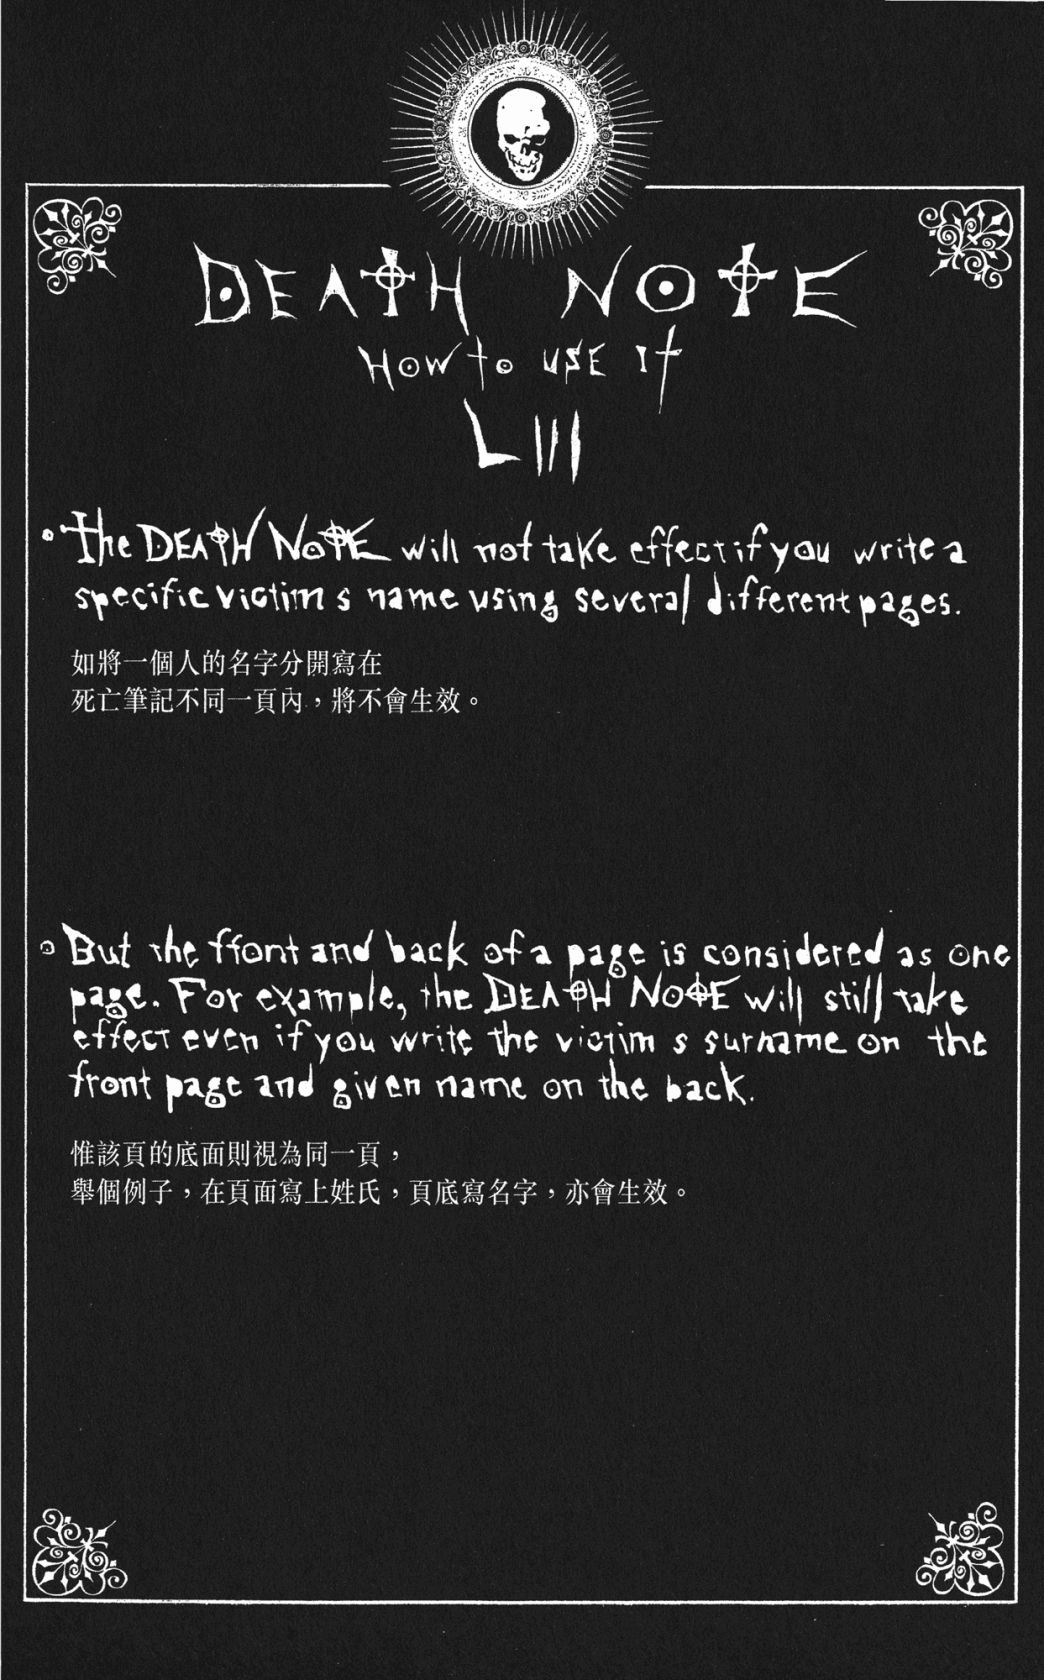 DEATH NOTE
HOW to USE It
LIII
The DEATH NOTE will not take effect if you write a
specific victim s name using several different pages.
如將一個人的名字分開寫在
死亡筆記不同一頁內，將不會生效。
But the ffont and back of a page is considered as one
page. For example, the DEATH NOTE will still take
effect even if you write the victim s surname on the
front page and given name on the back.
惟該頁的底面則視為同一頁，
舉個例子，在頁面寫上姓氏，頁底寫名字，亦會生效。